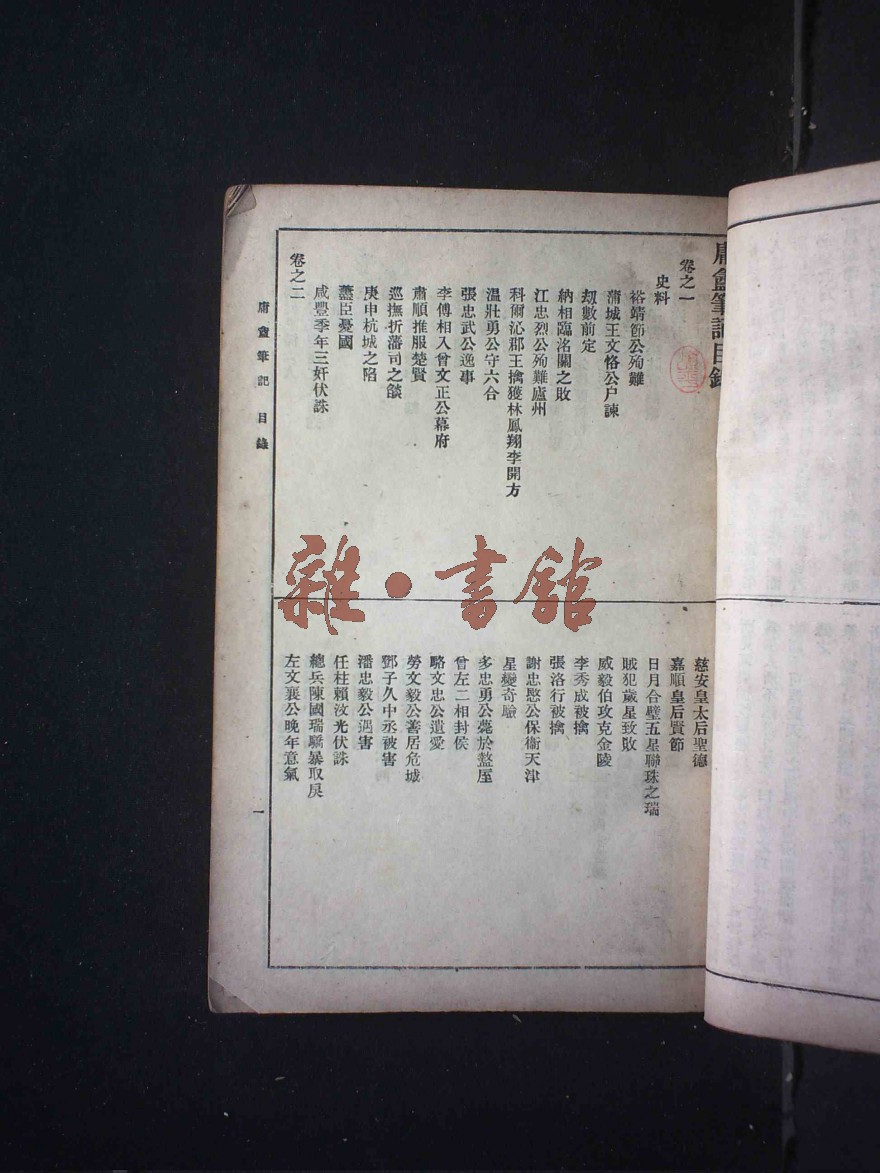 庸盦筆記目錄
卷之一
史料
裕靖節公殉難
蒲城王文恪公尸諫
刼數前定
納相臨洺關之敗
江忠烈公殉難廬州
科爾沁郡王擒獲林鳳翔李開方
溫壯勇公守六合
張忠武公逸事
李傅相入曾文正公幕府
肅順推服楚賢
巡撫折藩司之燄
庚申杭城之陷
藎臣憂國
咸豐季年三奸伏誅
卷之二
慈安皇太后聖德
嘉順皇后賢節
日月合璧五星聯珠之瑞
賊犯歲星致敗
威毅伯攻克金陵
李秀成被擒
張洛行被擒
謝忠愍公保衞天津
星變奇驗
多忠勇公薨於盩厔
曾左二相封侯
駱文忠公遺愛
勞文毅公善居危城
鄧子久中丞被害
潘忠毅公遇害
任柱賴汶光伏誅
總兵陳國瑞驕暴取戾
左文襄公晚年意氣
庸盦筆記 目錄
一
雜·書館